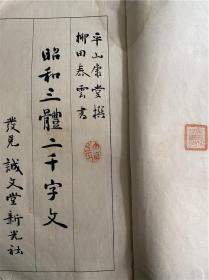 平山康堂撰
柳田泰雲書
昭和三體二千字文
發兌 誠文堂新光社